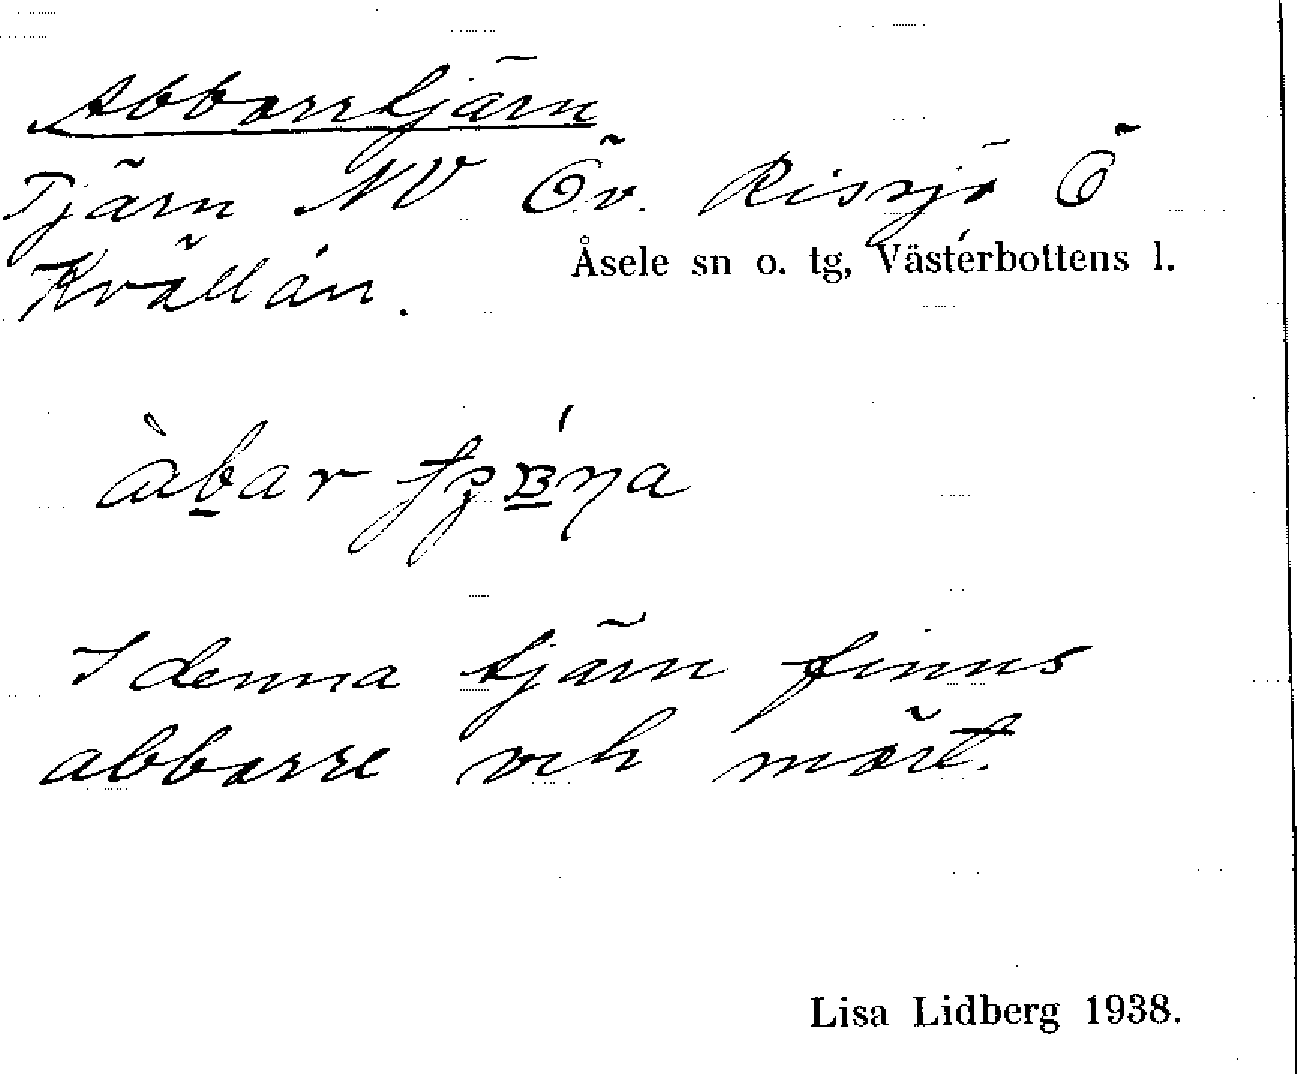 Abborrtjärn
Tjärn NV Öv. Rissjö Ö
Krällån.
Åsele sn o. tg, Västerbottens l.
I denna tjärn finns
abborre och mört.
Lisa Lidberg 1938.